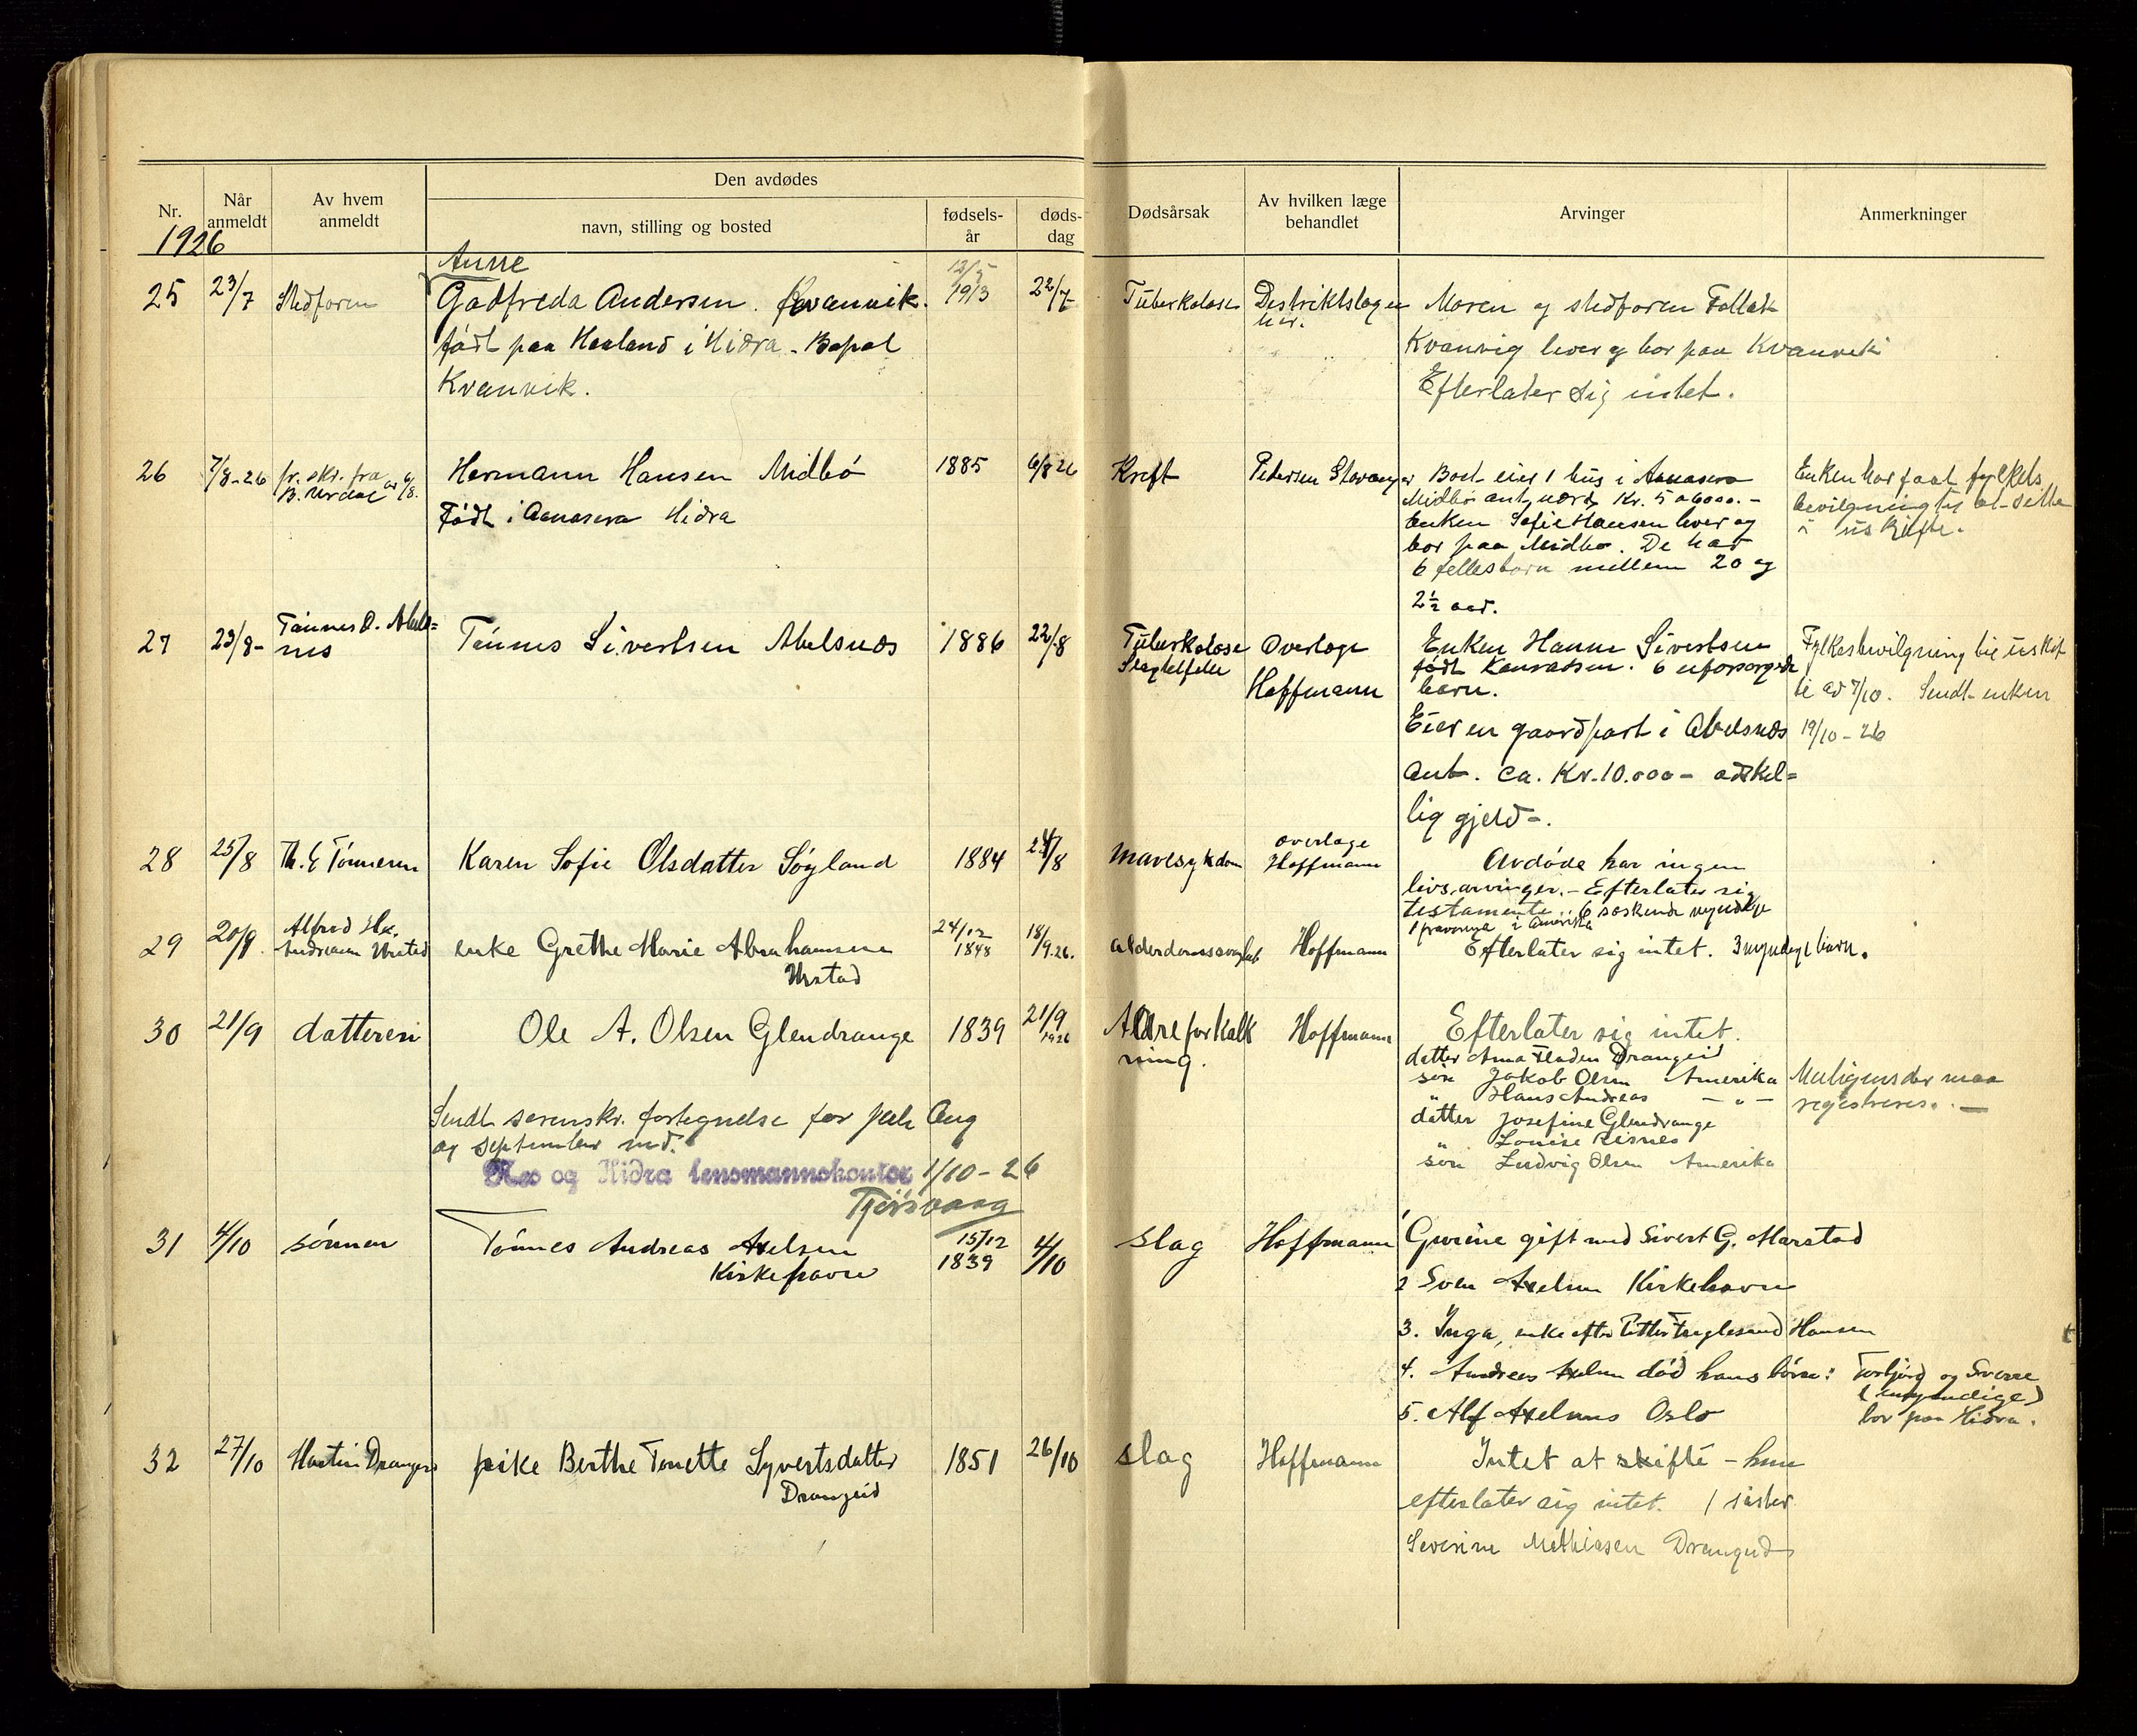 Den avdødes
Nr. Når anmeldt Av hvem anmeldt navn, stilling og bosted fødsels-år døds-dag Dødsårsak Av hvilken læge behandlet Arvinger Anmerkninger
1926
Anne
25 23/7 Stedfaren Godfreda Andersen Kvanvik. 12/5 1913 22/7 Tuberkolose Destriktslægen her.
født paa Haaland i Hidra. Bopæl
Kvanvik.
Moren og stedfaren Tollak
Kvanvig lever og bor paa Kvanvik
Efterlater sig intet.
26 7/8-26 pr. skr. fra B. Urdal av 6/8. Hermann Hansen Midbö 1885 6/8 26 Kreft Petersen Stavanger
Født i Aanasera Hidra
Boet eier 1 hus i Aanasera
Midbö ant. værd Kr. 5 a 6000.-
Enken Sofie Hansen lever og
bor paa Midbo. De har
6 fellesbarn mellem 20 og
2½ aar.
Enken har faat fylkets
bevilgning til at sitte
i uskifte.
27 23/8- Tönnes O. Abels=
nes Tönnes Sivertsen Abelsnes 1886 22/8 Tuberkolose Overlæge
Hoffmann
Enken Hanne Sivertsen
født Konradsen. 6 uforsørgede
barn.
Eier en gaardpart i Abelsnes
ant. ca. Kr. 10.000- adskel=
lig gjeld-.
Fylkesbevilgning til uskif
te av 7/10. Sendt enken
19/10-26
28 25/8 Th. E Tönnesen Karen Sofie Olsdatter Söyland 1884 24/8 Mavesykdom overlæge Hoffmann
Avdöde har ingen
livsarvinger. - Efterlater sig
testamente. 6 søskende myndige
i Amerika
29 20/9. Alfred
Andreassen Urstad enke Grethe Marie Abrahamsen
Urstad 24/12 1848 18/9.26. alderdomssvaghet Hoffmann Efterlater sig intet. 3 myndige barn.
30 21/9 datteren Ole A. Olsen Glendrange 1839 21/9 1926 Aareforkalk
ning. Hoffmann Efterlater sig intet.
datter Anna Drangeid
sön Jakob Olsen Amerika
" Hans Andreas - " -
datter Josefine Glendrange
" Louise Risnes
sön Ludvig Olsen Amerika
Muligens der maa
registreres. -
Sendt sorenskr. fortegnelse for juli Aug
og september md.
Nes og Hidra lensmannskontor 1/10-26
Tjörsvaag
31 4/10 sönnen Tönnes Andreas Axelsen
Kirkehavn 15/12 1839 4/10 slag Hoffmann
1 Gurine gift med Sivert G. Marstad
2 Sven Axelsen Kirkehavn
3. Inga, enke efter Hansen
4. Andreas Axelsen död hans börn: Torbjörg og Sverre
(umyndige)
bor paa Hidra.
5. Alf Axelsens Oslo
32 27/10 Martin Drangeid pike Berthe Tonette Syvertsdatter
Drangeid 1851 26/10 slag Hoffmann
Intet at skifte - hun
efterlater sig intet. 1 søster
Severine Mathiasen Drangeid